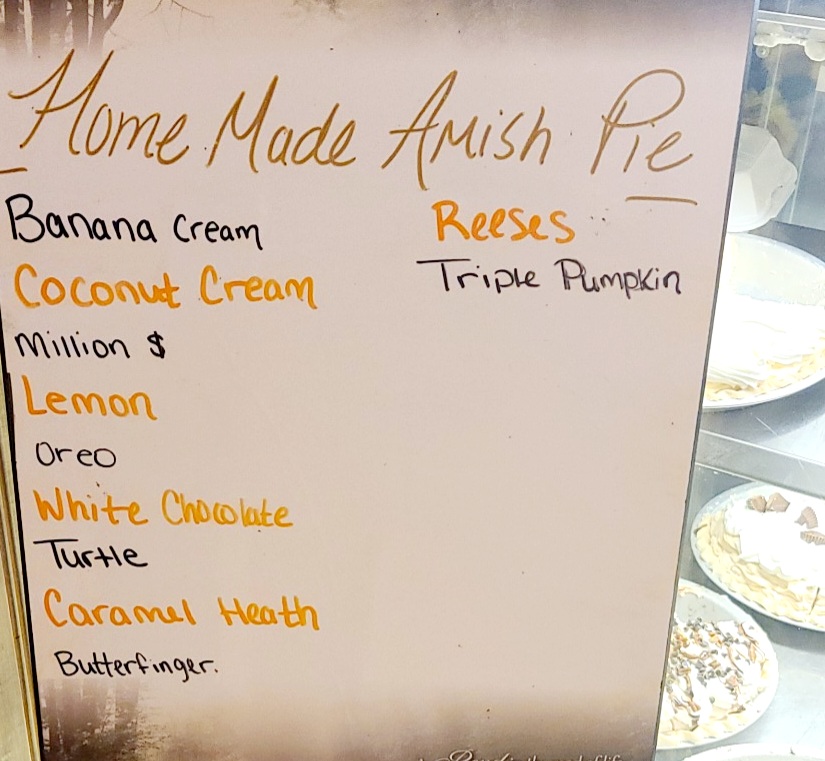 Home Made Amish Pie
Banana Cream
Coconut Cream
Million $
Lemon
Oreo
White Chocolate
Turtle
Caramel Heath
Butterfinger.
Reeses
Triple Pumpkin